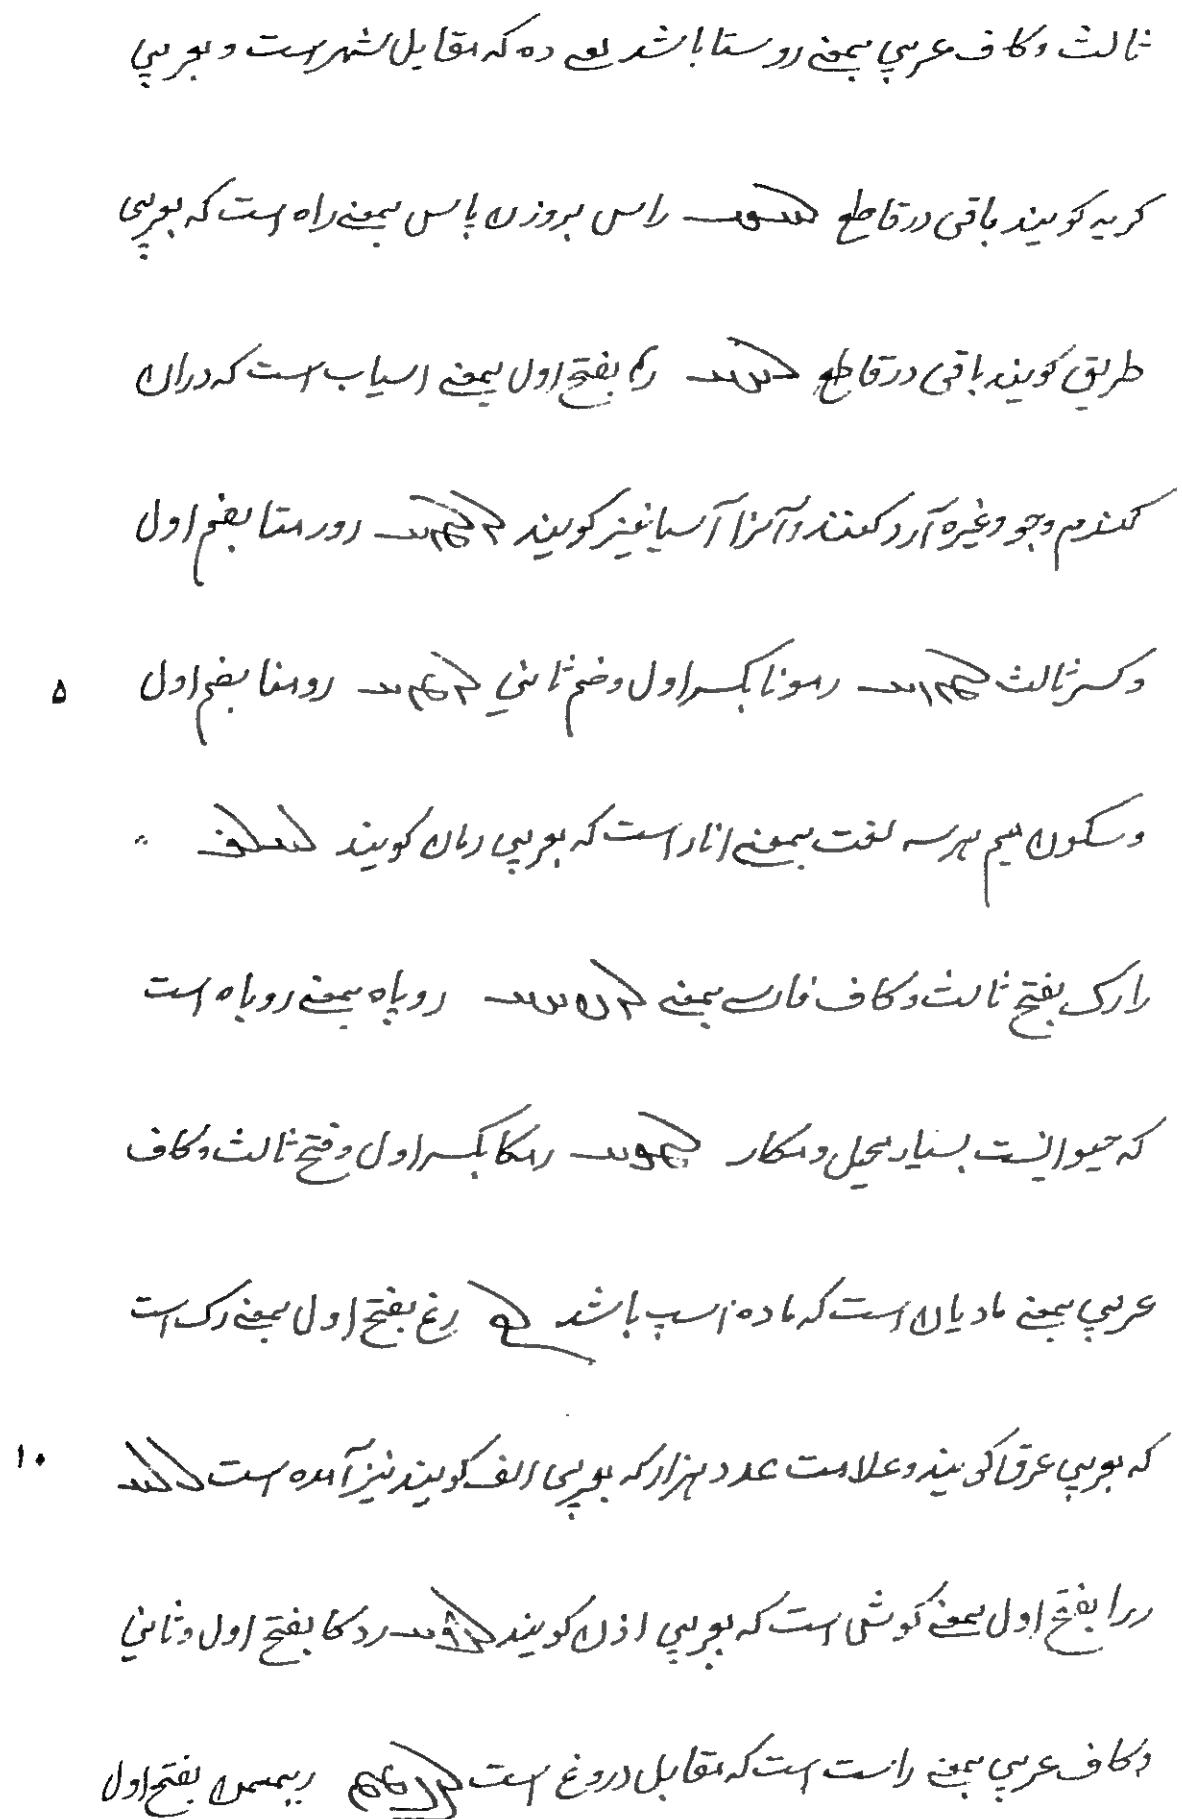 ثالث وکاف عربی بمعنے روستا باشد یعنے ده که مقابل شهر است و بعربی
کریه کویند باقی در قاطع راس بروزن پاس بمعنے راه است که بعربی
طریق کویند باقی در قاطع بفتح اول بمعنے اسیاب است که دران
کندم وجو وغیره آرد کنند وآنرا آسیا نیز کویند رورمتا بضم اول
وکسر ثالث رمونا بکسر اول وضم ثانی رومنا بضم اول
۵
وسکون میم هرسه لغت بمعنے انار است که بعربی رمان کویند
رارک بفتح ثالث وکاف فارسے بمعنے روپاه بمعنے روباه است
که حیوانیست بسیار محیل ومکار رمکا بکسر اول وفتح ثالث وکاف
عربی بمعنے مادیان است که ماده اسپ باشد رغ بفتح اول بمعنے رک است
که بعربی عرق کویند وعلامت عدد هزار که بعربی الف کویند نیز آمده است
۱۰
ررا بفتح اول بمعنے کوش است که بعربی اذن کویند ردکا بفتح اول وثانی
وکاف عربی بمعنے راست است که مقابل دروغ است بفتح اول